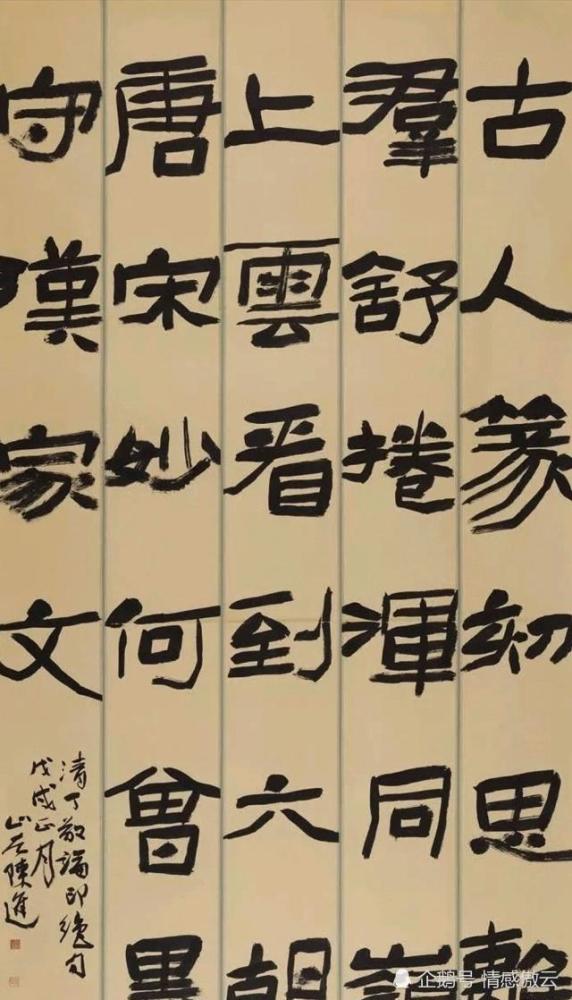 古人篆刻思
羣舒捲渾同
上雲看到六朝
唐宋妙何曾墨
守漢家文
清丁敬論印絕句
戊戌正月
陳進
企鹅号 情感傲云